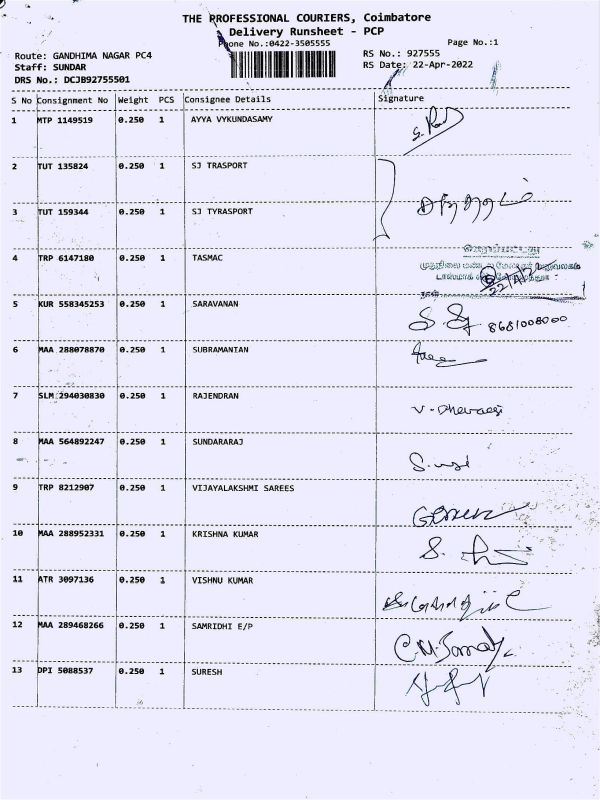 THE PROFESSIONAL COURIERS, Coimbatore
Delivery Runsheet - PCP
Phone No.:0422-3505555
Page No.:1
Route: GANDHIMA NAGAR PC4
RS No.: 927555
Staff: SUNDAR
RS Date: 22-Apr-2022
DRS No.: DCJB92755501
S No Consignment No Weight PCS Consignee Details Signature
1 MTP 1149519 0.250 1 AYYA VYKUNDASAMY
2 TUT 135824 0.250 1 SJ TRASPORT
3 TUT 159344 0.250 1 SJ TYRASPORT
4 TRP 6147180 0.250 1 TASMAC
5 KUR 558345253 0.250 1 SARAVANAN
8681008000
6 MAA 288078870 0.250 1 SUBRAMANIAN
7 SLM 294030830 0.250 1 RAJENDRAN
8 MAA 564892247 0.250 1 SUNDARARAJ
9 TRP 8212907 0.250 1 VIJAYALAKSHMI SAREES
10 MAA 288952331 0.250 1 KRISHNA KUMAR
11 ATR 3097136 0.250 1 VISHNU KUMAR
12 MAA 289468266 0.250 1 SAMRIDHI E/P
13 DPI 5088537 0.250 1 SURESH